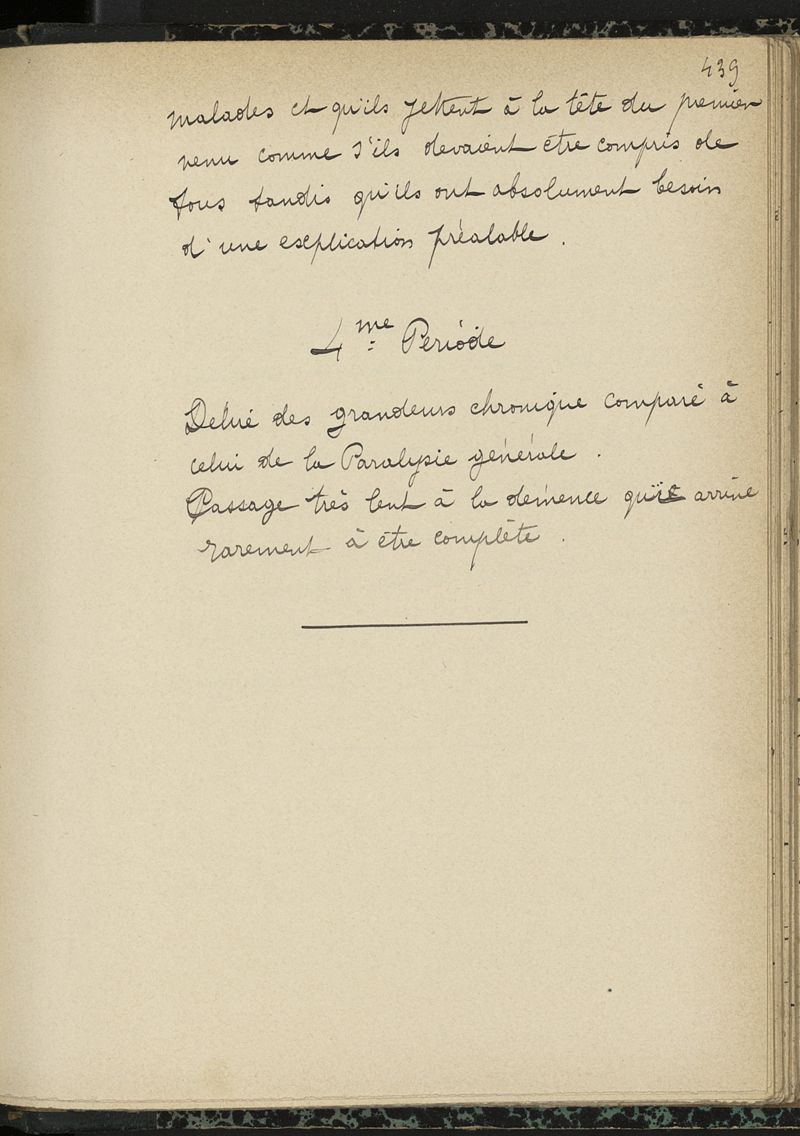 439
malades et qu'ils jettent à la tête du premier
venu comme s'ils devaient être compris de
tous tandis qu'ils ont absolument besoin
d'une explication préalable.
4me Période
Délire des grandeurs chronique comparé à
celui de la Paralysie générale.
Passage très lent à la démence qui arrive
rarement à être complète.